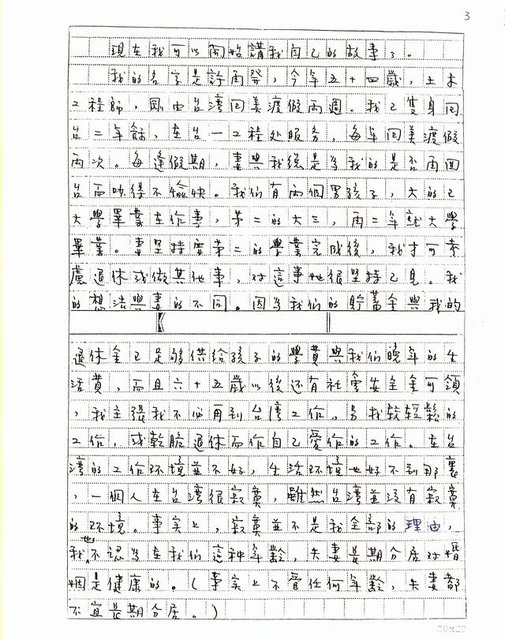 3
現在我可以開始講我自己的故事了。
我的名字是許雨癸,今年五十四歲,土木
工程師,剛由台灣回美渡假兩週。我已隻身回
台二年餘,在台一工程処服务,每年回美渡假
兩次。每逢假期,妻與我總是為我的是否再回
台而吵得不愉快。我们有兩個男孩子,大的已
大學畢業在作事,第二的大三,再二年就大學
畢業。妻堅持要第二的學業完成後,我才可考
慮退休或做其他事,对這事她很堅持己見。我
的想法與妻的不同。因為我们的貯蓄金與我的
退休金已足够供給孩子的學費與我们晚年的生
活費,而且六十五歲以後还有社會安全金可領
,我主張我不必再到台湾工作。另找較輕鬆的
工作,或乾脆退休而作自己爱作的工作。在台
灣的工作环境並不好,生活环境也好不到那裏
,一個人在台湾很寂寞,雖然台湾並沒有寂寞
的环境。事实上,寂寞並不是我全部的理由,
我也不認為在我们這种年齡,夫妻長期分居对婚
姻是健康的。(事实上不管任何年齡,夫妻都
不宜長期分居。)